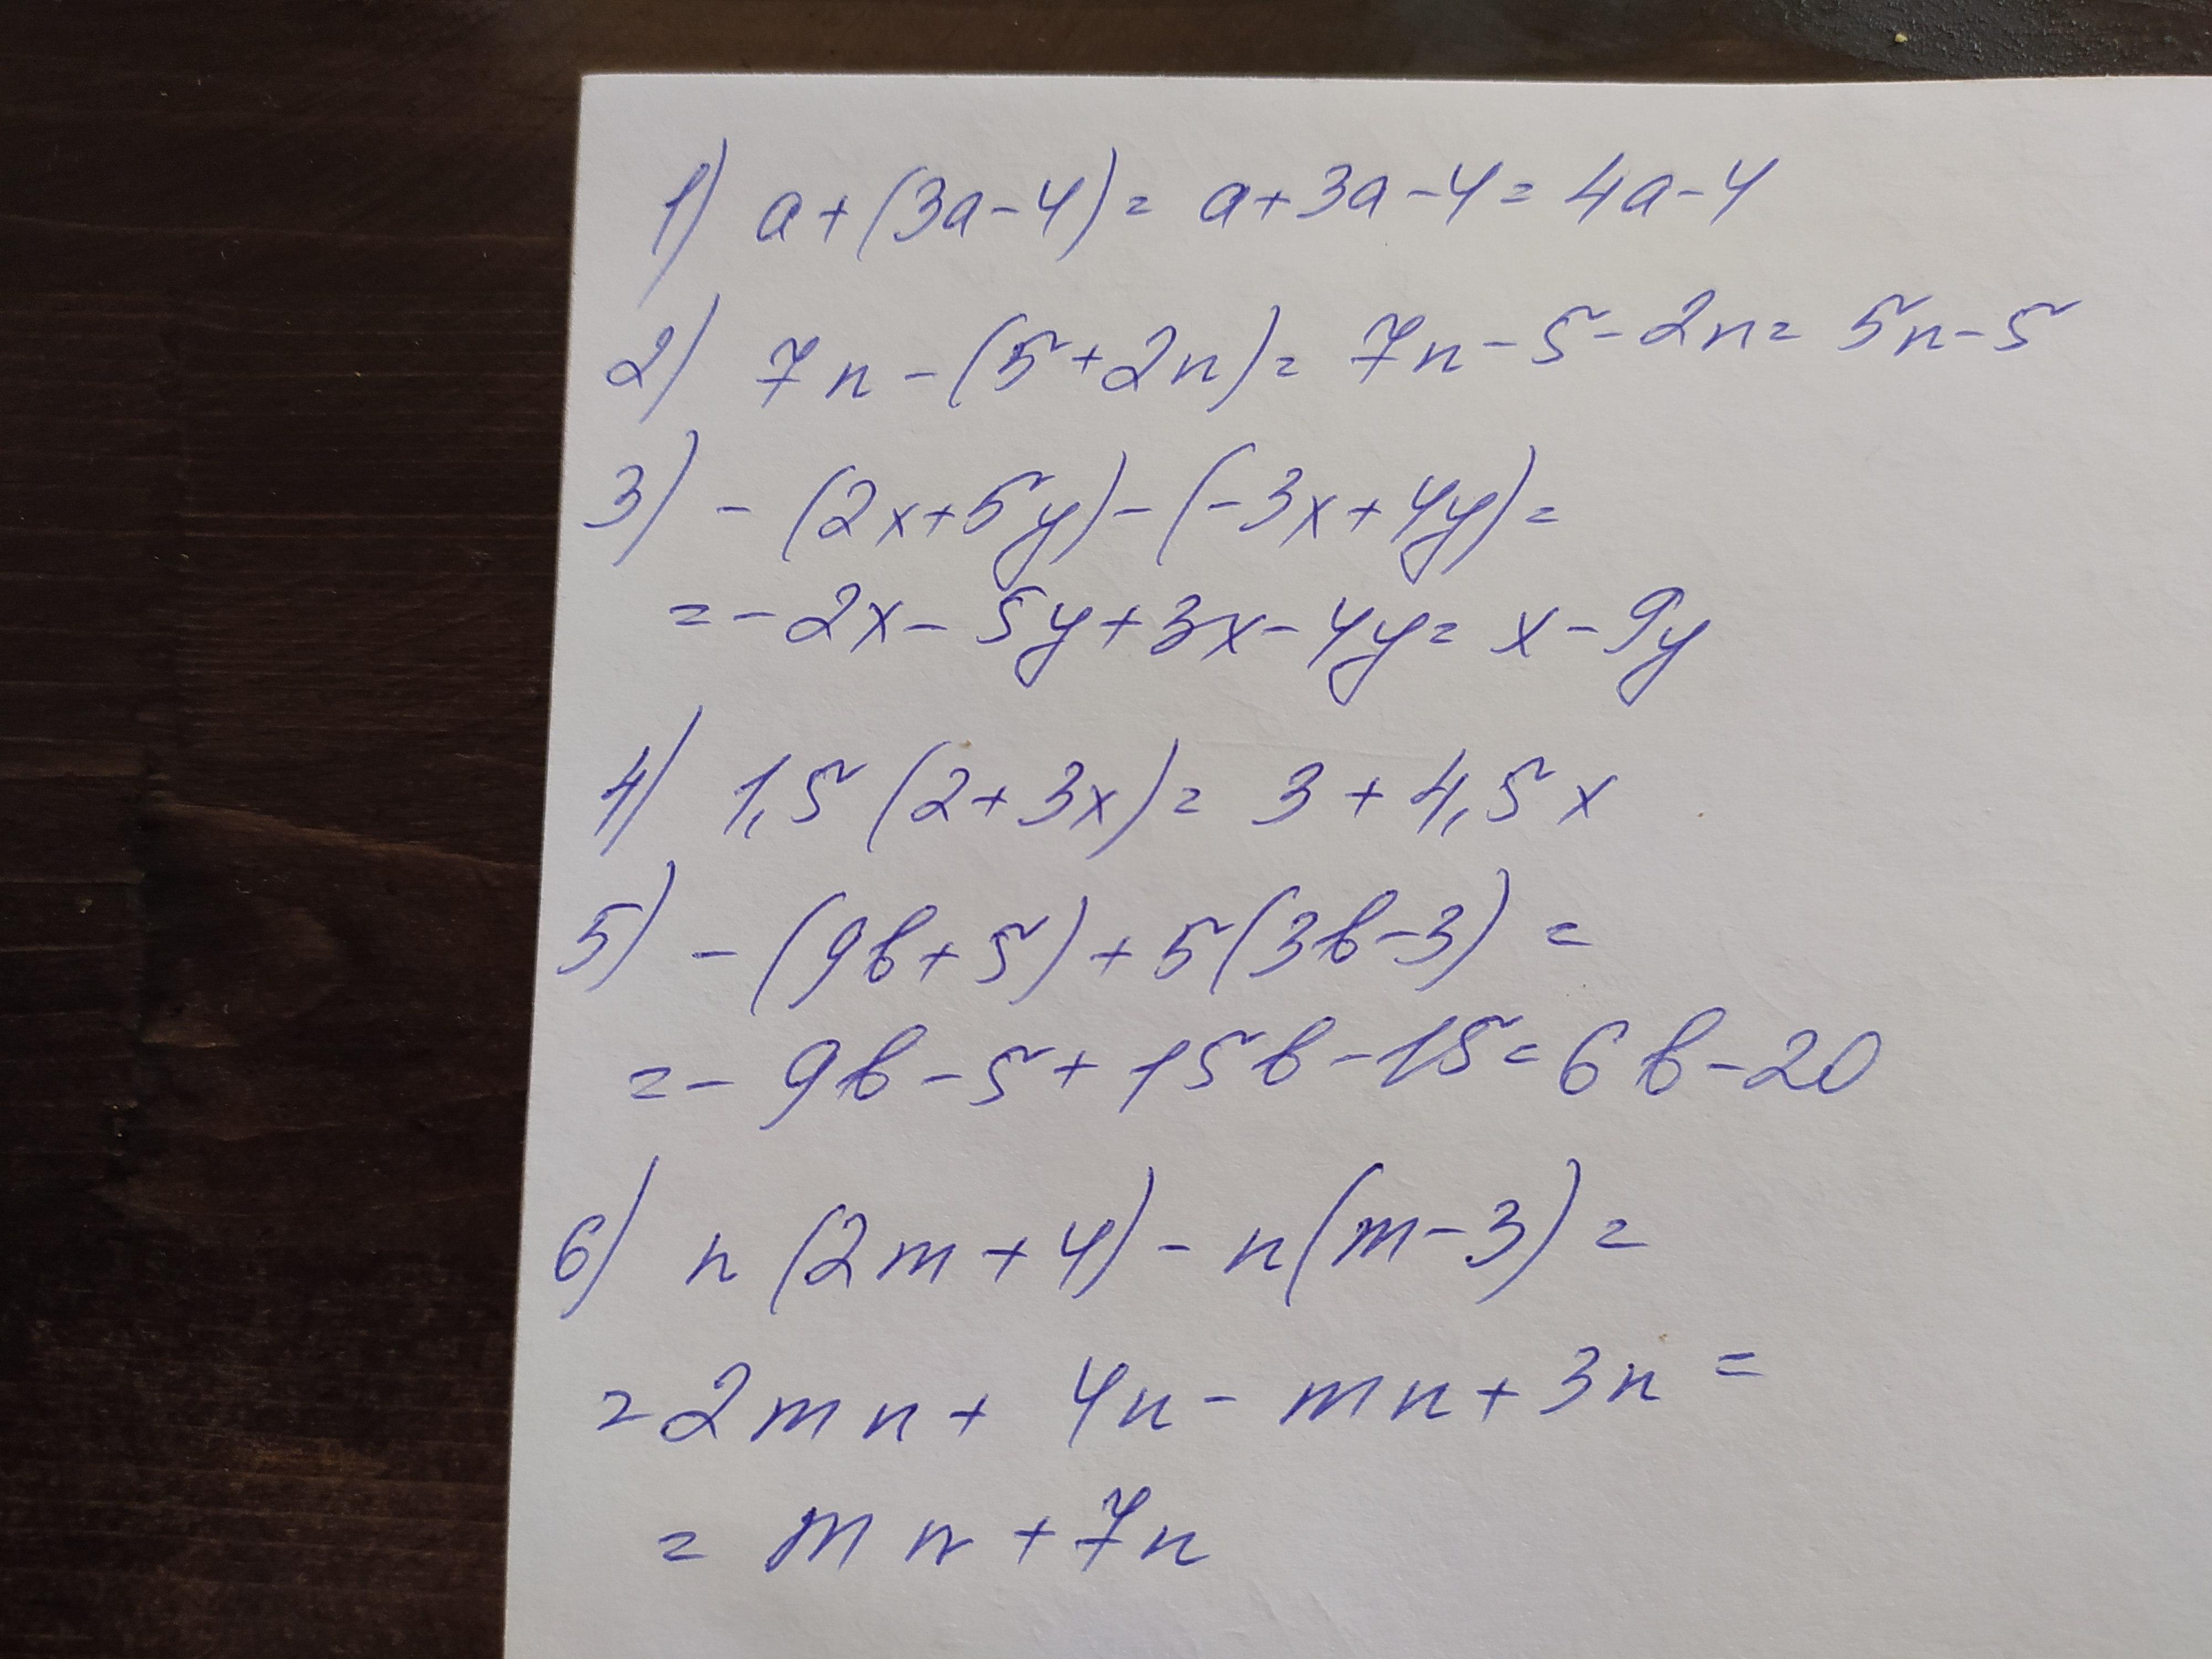 1) a+(3a-4)= a+3a-4= 4a-4
2) 7n-(5+2n)= 7n-5-2n= 5n-5
3) -(2x+5y)-(-3x+4y)=
=-2x-5y+3x-4y= x-9y
4) 1,5(2+3x)= 3+4,5x
5) -(9b+5)+5(3b-3)=
=-9b-5+15b-15=6b-20
6) n(2m+4)-n(m-3)=
=2mn+4n-mn+3n=
= mn+7n